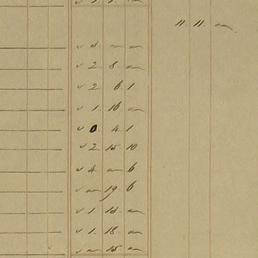 11 11 —
✓ 2 8 —
✓ 2 6 1
✓ 1 16 —
✓ 0 4 1
✓ 2 15 10
✓ 4 — 6
✓ — 19 6
✓ 1 18 —
✓ — 15 —